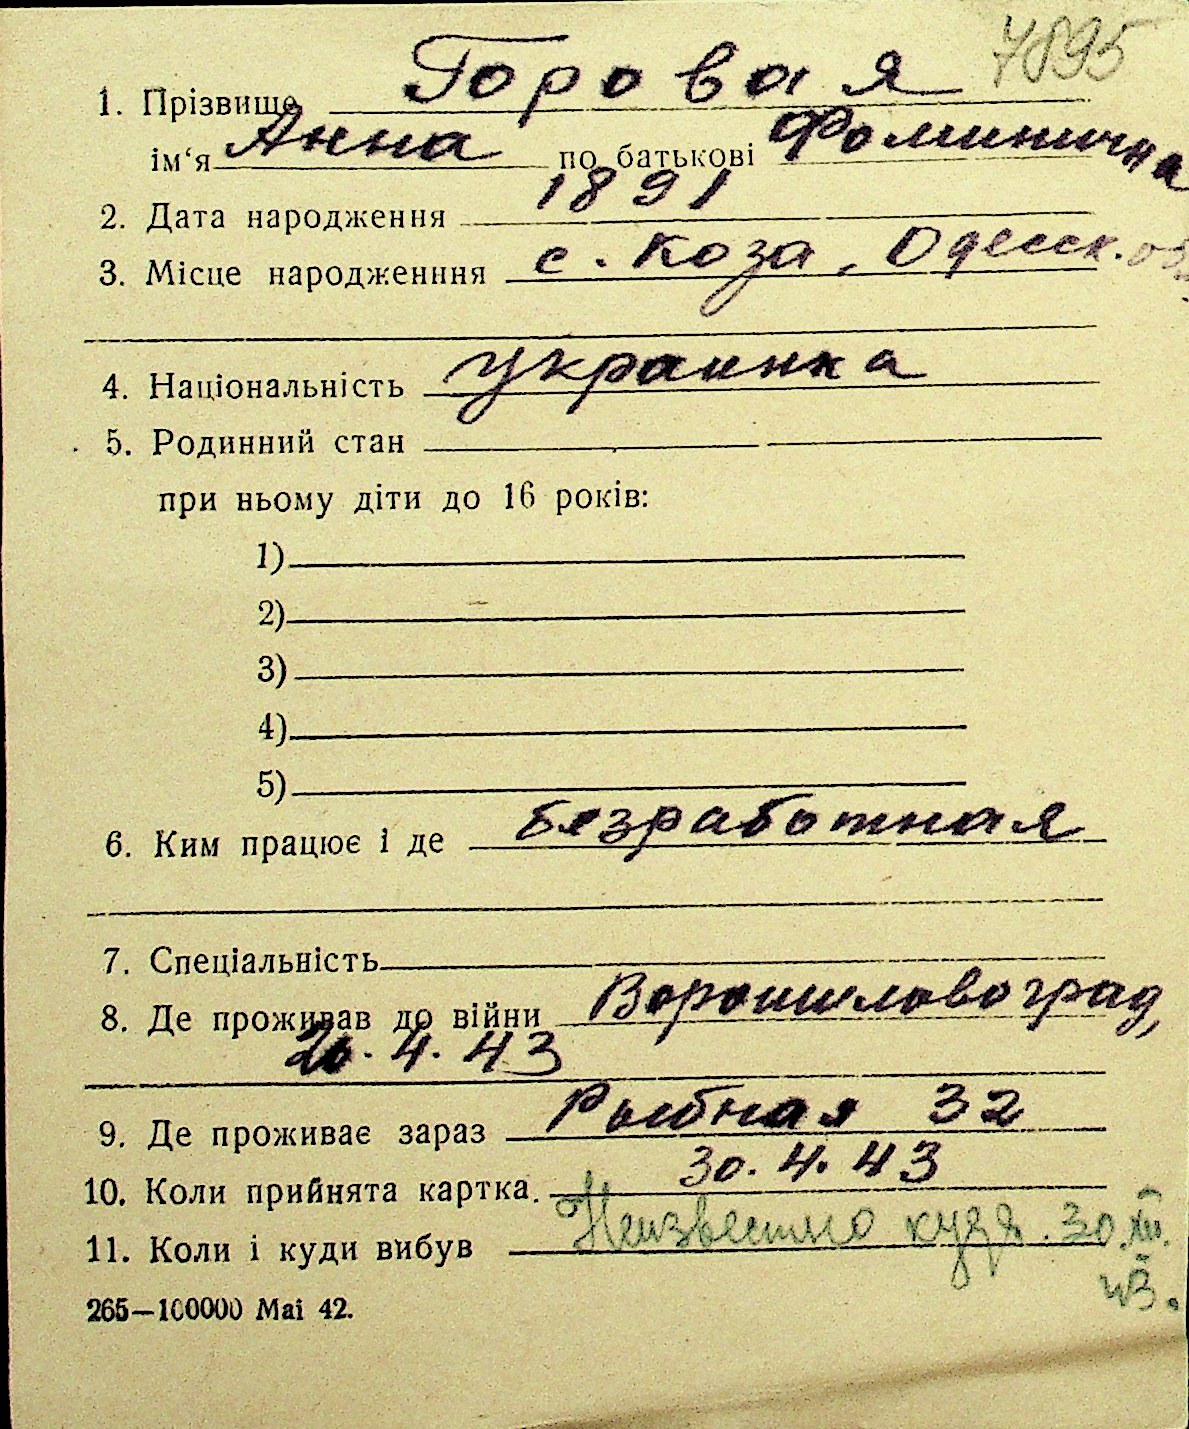 7895
1. Прізвище Горовая
ім‘я Анна по батькові Фоминична
2. Дата народження 1891
3. Місце народженння с. Коза, Одесск. обл.
4. Національність украинка
5. Родинний стан
при ньому діти до 16 років:
1)
2)
3)
4)
5)
6. Ким працює і де безработная
7. Спеціальність
8. Де проживав до війни Ворошиловоград,
20. 4. 43
9. Де проживає зараз Рыбная 32
10. Коли прийнята картка. 30. 4. 43
11. Коли і куди вибув Неизвестно куда. 30.
43.
265—100000 Mai 42.